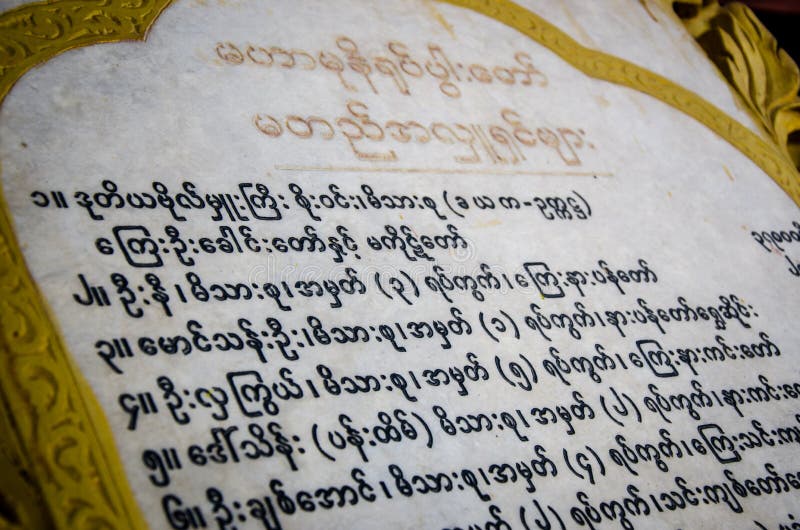 မဟာမုနိရုပ်ပွါးတော်
မတည်အလှူရှင်များ
၁။ ဒုတိယဗိုလ်မှူးကြီး စိုးဝင်း၊မိသားစု (ခယက-ဥက္ကဋ္ဌ)
ကြေးဦးခေါင်းတော်နှင့် မကိုဋ်တော်
၂။ ဦးနီ၊မိသားစု၊အမှတ် (၃) ရပ်ကွက်၊ကြေးနားပန်တော်
၃။ မောင်သန်းဦး၊မိသားစု၊အမှတ် (၁) ရပ်ကွက်၊နားပန်တော်ရွှေဆိုင်း
၄။ ဦးလှကြွယ်၊မိသားစု၊အမှတ် (၅) ရပ်ကွက်၊ကြေးနားကင်းတော်
၅။ ဒေါ်သိန်း (ပန်းထိမ်) မိသားစု၊အမှတ် (၂) ရပ်ကွက်၊နားကင်း
၆။ ဦးချစ်အောင်၊မိသားစု၊အမှတ် (၄) ရပ်ကွက်၊ကြေးသင်း
ရပ်ကွက်၊သင်းကျစ်တော်